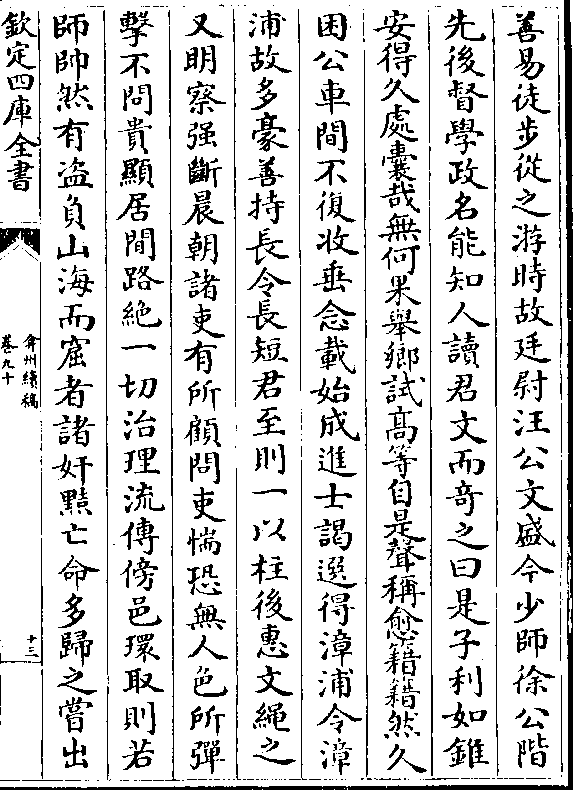 善易徒步從之游時故廷尉汪公文盛今少師徐公階
先後督學政名能知人讀君文而竒之曰是子利如錐
安得久處囊哉無何果舉鄉試高等自是聲稱愈籍籍然久
困公車間不復收垂念載始成進士謁選得漳浦令漳
浦故多豪善持長令長短君至則一以柱後惠文繩之
又明察强斷晨朝諸吏有所顧問吏惴恐無人色所彈
擊不問貴顯居間路絶一切治理流傳傍邑環取則若
師帥然有盗負山海而窟者諸奸黠亡命多歸之嘗出
欽定四庫全書
弇州續稿
卷九十
十三